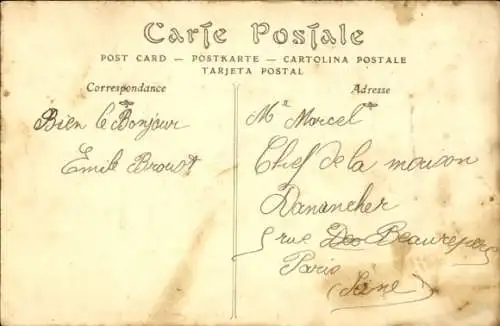 Carte Postale
POST CARD — POSTKARTE — CARTOLINA POSTALE
TARJETA POSTAL
Correspondance
Bien le Bonjour
Emile
Adresse
Mr Marcel
Chef de la maison
Danancher
5 rue Beaurepere
Paris
(Seine)